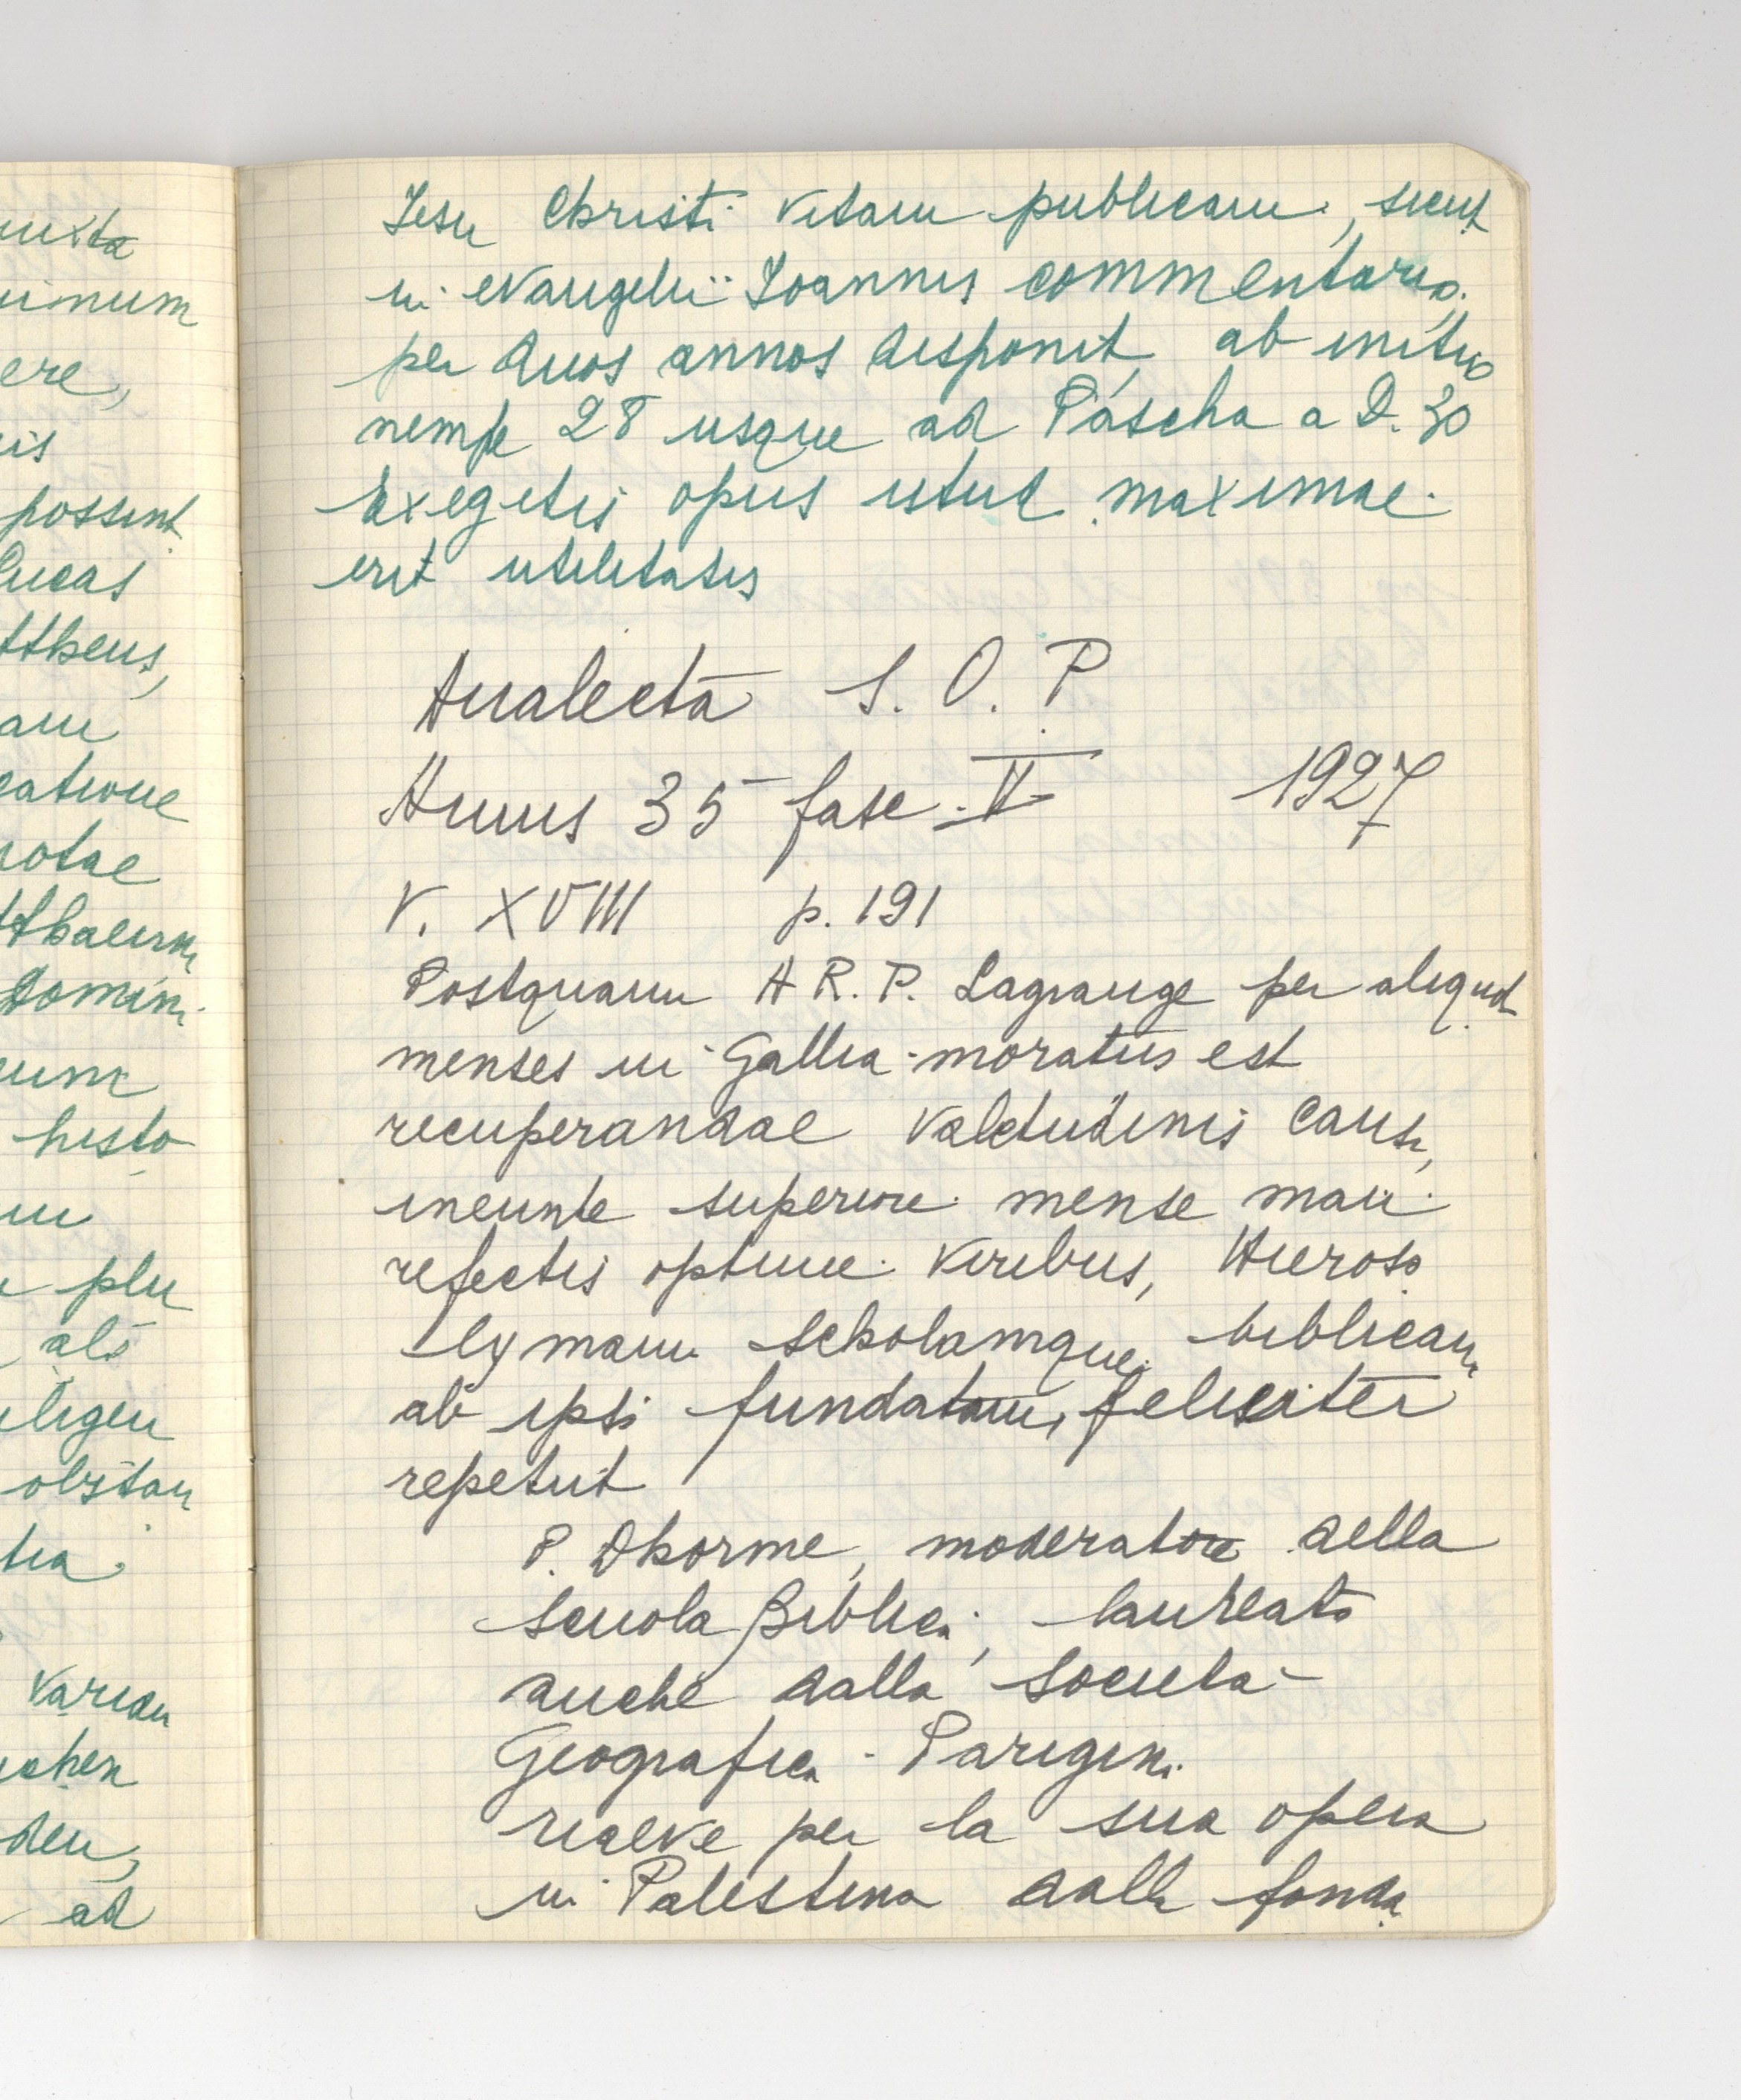 uxta
uimum
ere,
is
possint
Lucas
ttheus,
am
catione
notae
tthaeum
domini
um
histo
in
plu
ali
iligen
obstan
tia.
varian
chen
den,
ad
Iesu Christi vitam publicam, sicut
in evangelii Ioannis commentario
per duos annos disponit, ab initio
nempe 28 usque ad Pascha a D. 30
Exegetis opus istud maximae
erit utilitatis
Analecta S. O. P
Annus 35 fasc. V 1927
V. XVIII p. 191
Postquam A R. P. Lagrange per aliquot
menses in Gallia moratus est
recuperandae valetudinis causa,
ineunte superiore mense maii
refectis optime viribus, Hieroso
lymam scholamque biblicam
ab ipso fundatam, feliciter
repetiit
P. Dhorme, moderatore della
scuola Biblica, laureato
anche dalla Societa
Geografica Parigina
riceve per la sua opera
in Palestina dalla fonda